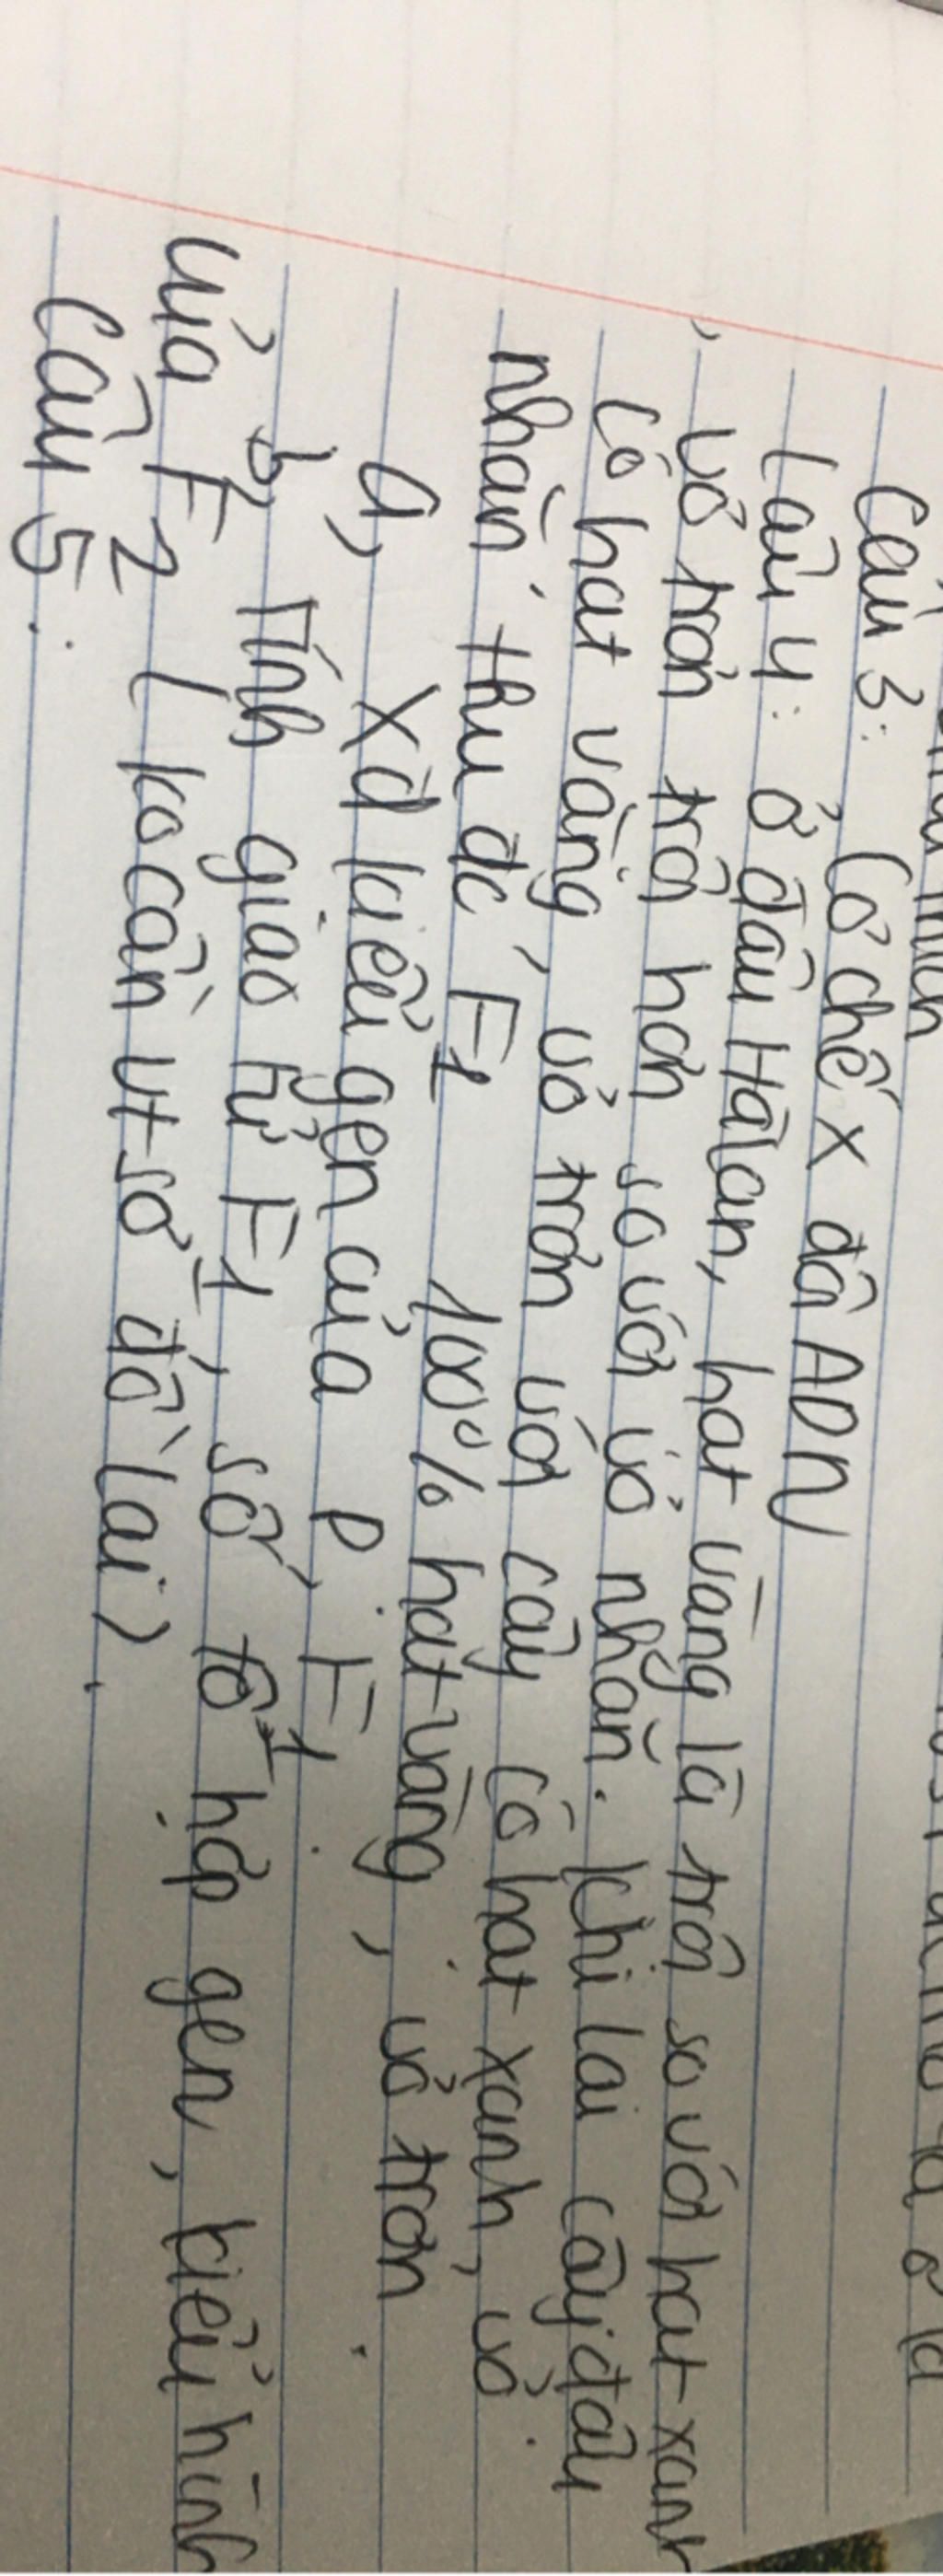 Câu 3: Cơ chế x đôi ADN
Câu 4: Ở đậu Hà lan, hạt vàng là trội so với hạt xanh
vỏ trơn trội hơn so với vỏ nhăn. Khi lai cây đậu
có hạt vàng, vỏ trơn với cây có hạt xanh, vỏ
nhăn thu đc F1 100% hạt vàng, vỏ trơn.
a, Xđ kiểu gen của P, F1.
b, Tính giao tử F1, số tổ hợp gen, kiểu hình
của F2 (ko cần vt sơ đồ lai).
Câu 5: